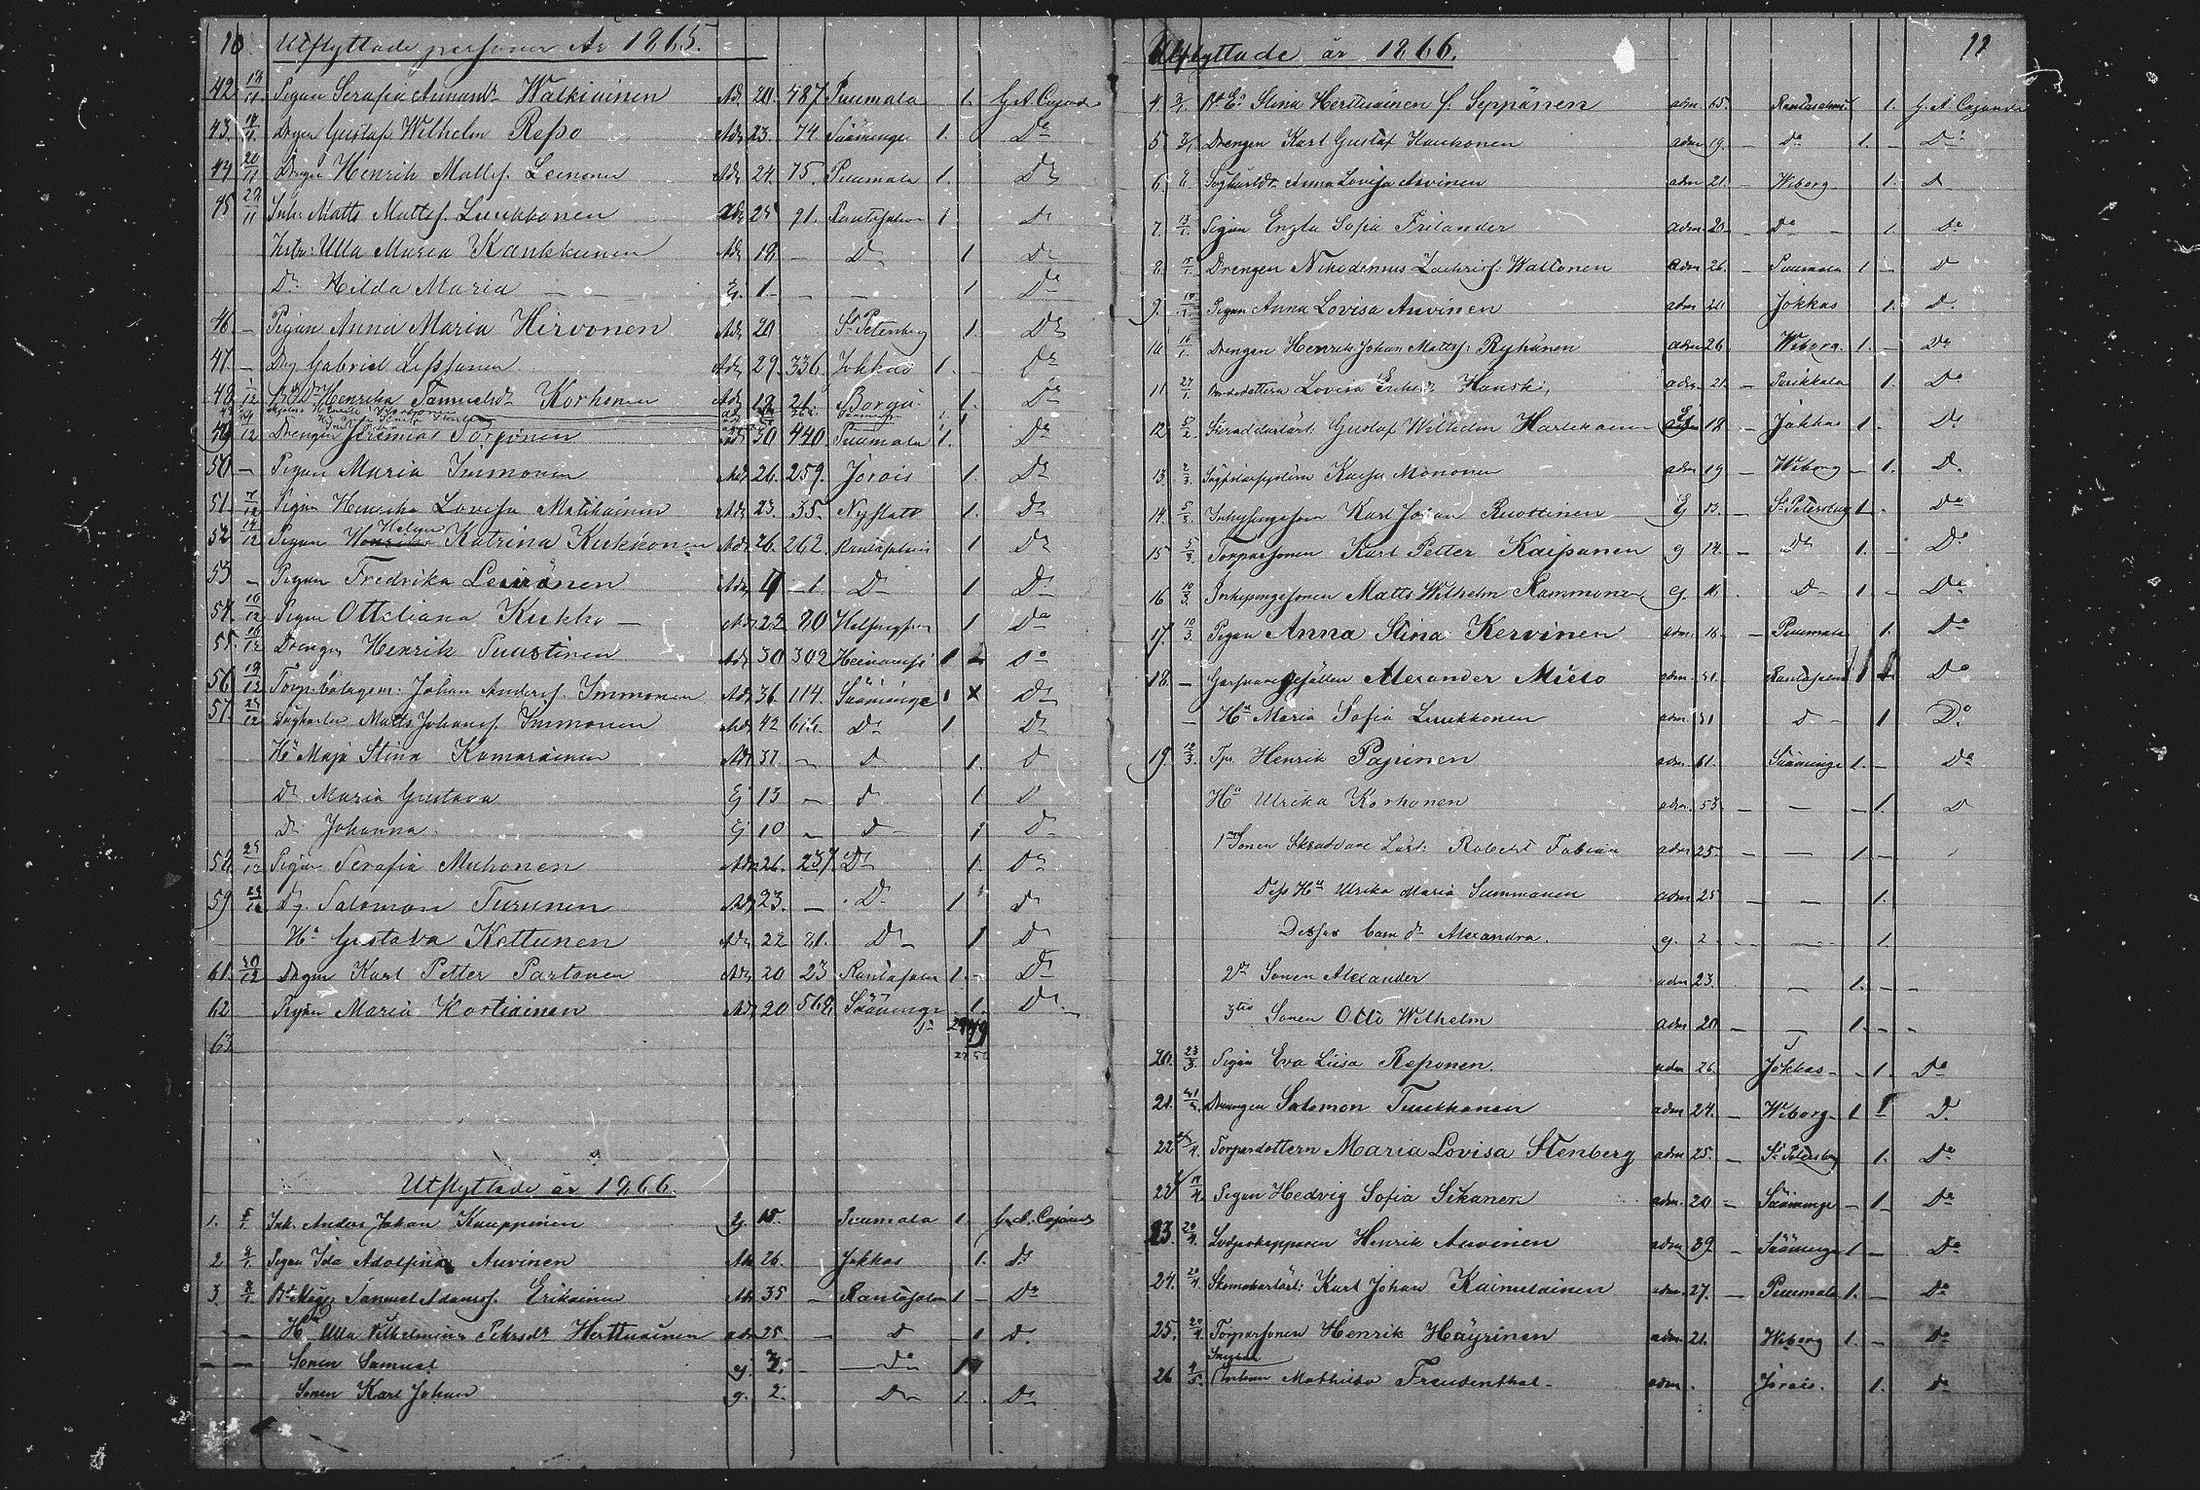 10 Utflyttade personer År 1865.
42 13/11 Pigan Serafia Amands Walkiainen Adm 20. 487. Puumala 1. G. A. Cajander
43. 14/11. Dregn Gustaf Wilhelm Repo Adm 23. 74 Sääminge 1. Do
44 20/11 Dregn Henrik Mattsf. Leinonen Adm 24. 75. Puumala 1. Do
45 27/11 Inh. Matts Mattsf. Luukkonen Adm 25 91. Rantasalmi 1 Do
Hustr: Ulla Maria Kankkunen Adm 19 — Do 1 Do
Dr Hilda Maria — — Ej. 1. — — 1 Do
46 — Pigan Anna Maria Hirvonen Adm 20 St Petersburg 1. Do
47. — Drg Gabriel Leskanen Adm 29. 336. Jokkas 1. — Do
48 1/12 Henrika Samuelsdr Korhonen Adm 19 21. Borgå 1. Do
49 /12 Drengen Jeremias Torponen Adm 30 440 Puumala 1. Do
50 — Pigan Maria Immonen Adm 26. 259. Jorois 1. Do
51. 7/12 Pigan Henrika Lovisa Matikainen Adm 23. 35. Nyslott 1. Do
52 14/12 Pigan Helena Katrina Kukkonen Adm 26. 262. Rantasalmi 1 Do
53 — Pigan Fredrika Leinonen Adm — 1. Do 1 Do
54. 16/12 Pigan Otteliana Kukko — Adm 22 80 Helsingfors 1 Do
55. 16/12 Drengen Henrik Puustinen Adm 30 302 Heinävesi 1 — Do
56 19/12 Torp. bolagsm. Johan Andersf. Immonen Adm 36 114. Sääminge 1 x Do
57. 23/12 Matts Johansf. Immonen Adm 42 616. Do 1 Do
Hu Maja Stina Komarainen Adm 37 — D 1. D
Dr Maria Gustava Ej 13 — D 1 D
Dr Johanna. Ej 10 — D — 1 D
58 23/12 Pigan Serafia Muhonen Adm 26. 237. Do 1. Do
59 Dg. Salomon Turunen Adm 23. — Do 1 Do
Hu Gustava Kettunen Adm 22 21. Do 1 D
61. 30/12 Dregn Karl Petter Partanen Adm 20 23 Rantasalmi 1 — Do
62 Pigan Maria Kortiainen Adm 20 568 Sääminge 1. Do
63
Utflyttade år 1866.
1. 5/1. Inh. Anders Johan Kauppinen Ej 15. Puumala 1. G. A. Cajander
2 9/1. Pigan Ida Adolfina Auvinen Adm 26. Jokkas 1. Do
3. 8/1. Samuel Adamsf. Erikainen Adm 35 — Rantasalmi 1 — Do
— — Hu Ulla Vilhelmina Pehrsdr Herttuainen adm 25 — D 1 D.
— — Sonen Samuel ej. — Do
Sonen Karl Johan ej. 2. Do 1. Do
Utflyttade år 1866. 11
4. 3/1. Stina Herttuainen f. Seppänen adm 65. Rantasalmi 1. G. A. Cajander
5 3/1 Drengen Karl Gustaf Kaukonen adm 19. — Do 1. — Do
6. 8 Anna Lovisa Auvinen adm 21. — Wiborg 1. D
7. 13/1. Pigan Engla Sofia Frilander adm. 20 — Do — 1. Do
8. 15/1. Drengen Nikodemus Zachrisf. Waltonen adm 26. — Puumala 1 — D
9. Pigan Anna Lovisa Auvinen adm 20 Jokkas 1. D.
10. 16/1. Drengen Henrik Johan Mattsf. Ryhänen adm 26. Wiborg. 1. — Do
11 27/1 Lovisa Eriksdr Hanski, adm 21. — Parikkala 1. Do
12. /2 Skraddarlärl. Gustaf Wilhelm Karlsson Ej 18 — Jokkas 1. Do
13 2/3. Kaisa Mononen adm 19 — Wiborg — 1. D.
14. 5/3. Inhysingesson Karl Johan Ruottinen Ej 13. — St Petersburg 1. Do
15 5/3. Torparsonen Karl Petter Kaipanen ej 14. — Do 1. — Do
16 10/3. Inhysingesonen Matts Wilhelm Rammonen ej. 16. Do 1 — Do
17. 10/3. Pigan Anna Stina Kervinen adm. 16. — Puumala 1. Do
18. — Garfvaregesällen Alexander Mieto adm. 31. Rantasalmi 1 Do
— Hu Maria Sofia Luukkonen adm. 31 D — 1 Do
19. 12/3. Tpr. Henrik Pajunen adm. 61. Sääminge 1. — Do
Hu Ulrika Korhonen adm. 53. — — 1. D
1sta Sonen Skraddare Lärl: Robert Fabian adm 25. — — 1 —
Dess Hu Ulrika Maria Summanen adm 25 — — 1.
Desses barn dr Alexandra. ej. 2 — — 1.
2dra Sonen Alexander adm 23. — 1. — —
3die Sonen Otto Wilhelm adm 20 — — 1. — —
20. 23/3. Pigan Eva Liisa Reponen. adm 26. Jokkas — — 1 — Do
21. Drengen Salomon Tuukkanen adm 24. — Wiborg — 1 D.
22 /4. Torpardottern Maria Lovisa Stenberg adm 25. — St Petersburg 1. Do
22 /4 Pigan Hedvig Sofia Sikanen adm. 20 — Sääminge — 1 — Do
23. 20/4. Lodjeskepparen Henrik Auvinen adm 39 — Sääminge 1 — Do
24. 20/4. Skomakarlärl: Karl Johan Kaimulainen adm. 27. — Puumala 1. — Do
25. 20/4. Torparsonen Henrik Häyrinen adm 21. Wiborg 1. — Do
26 4/5. Mathilda Freudenthal — adm. Jorois. 1. Do